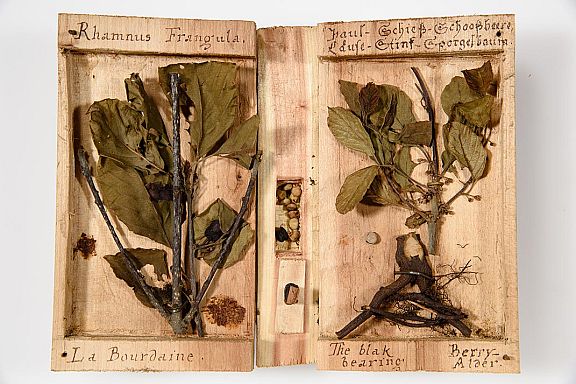 Rhamnus Frangula.
Faul-Schieß-Schooßbeere
Läuse-Stinf-Sporgelbaum.
La Bourdaine.
The blak
bearing
Berry-
Alder.